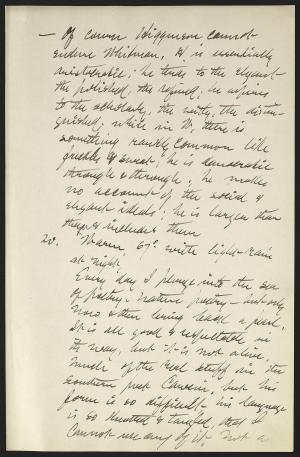 — Of course Higginson cannot
endure Whitman. H. is essentially
aristocratic; he tends to the elegant
the polished, the refined; he aspires
to the scholarly, the witty, the distin-
guished; while in W. there is
something rankly common like
freckles & sweat; he is democratic
through & through; he makes
no account of the social &
elegant ideals; he is larger than
they & includes them
20. Warm 67° with light rain
at night.
Every day I plunge into the sea
of poetry - nature poetry - but only
now & then bring back a pearl.
It is all good & respectable in
its way, but it is not alive.
Much of the real stuff in the
southern poet Cawein, but his
form is so difficult, his language
is so knotted & tangled, that I
cannot use any of it. Not a